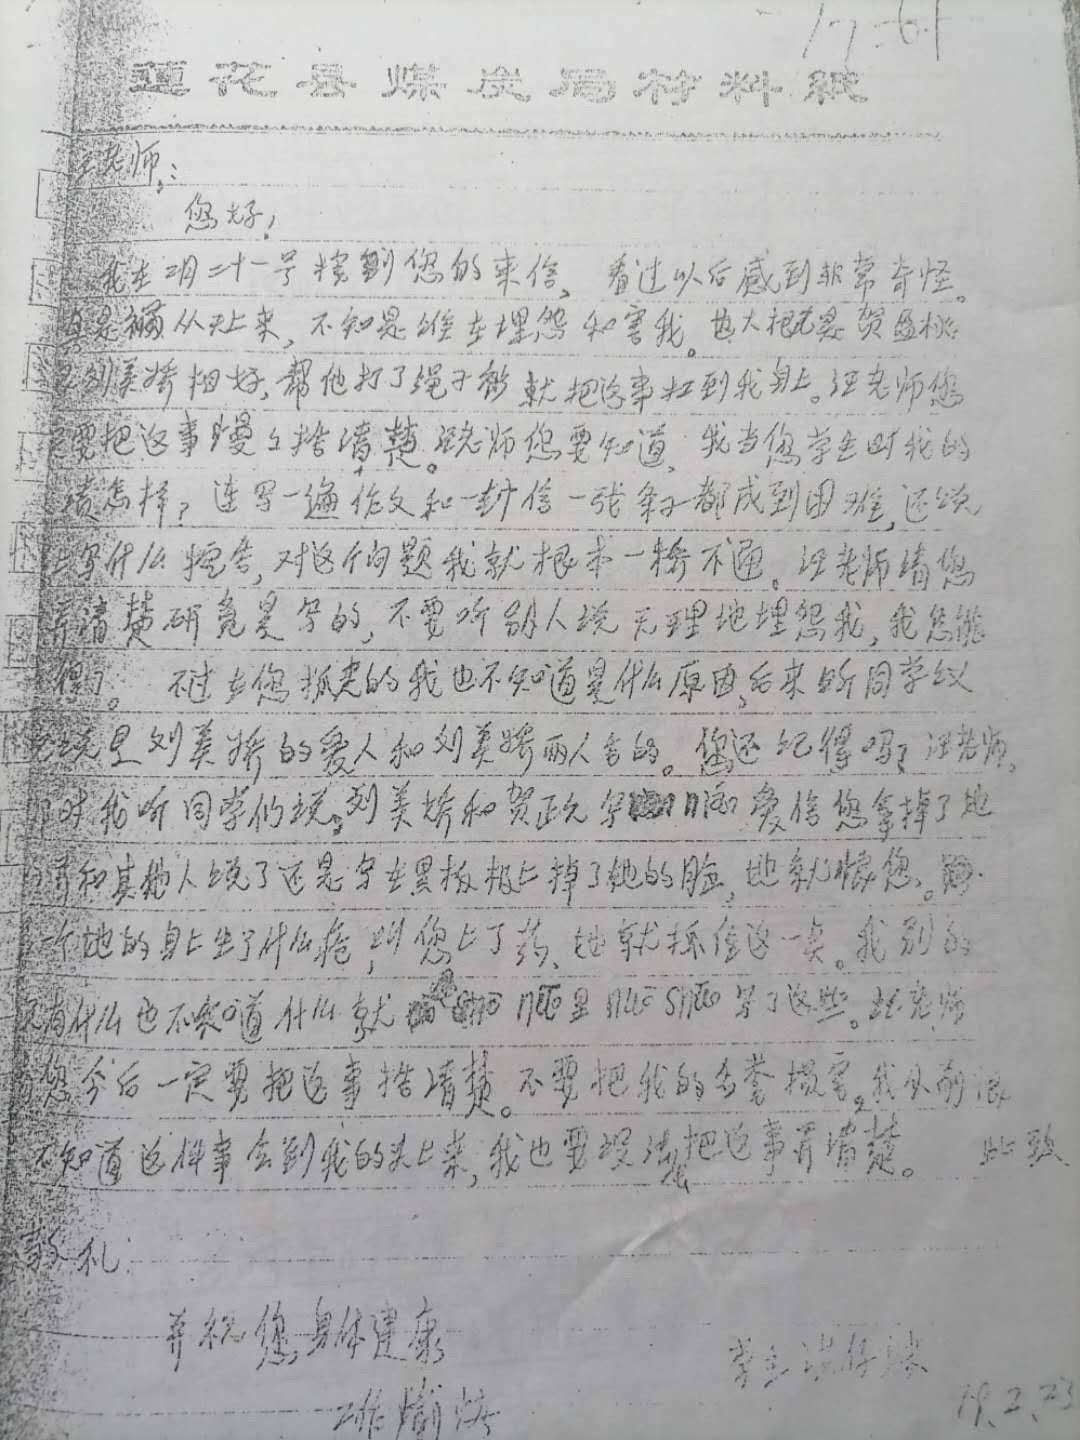 莲花县煤炭局材料纸
汪老师：
您好！
我在2月二十一号接到您的来信，看过以后感到非常奇怪。
真是祸从天上来，不知是谁在埋怨和害我。
刘美娇相好，帮他打了绳子 就把这事扛到我身上。汪老师您
要把这事慢慢搞清楚。汪老师您要知道，我当您学生时我的
成绩怎样？连写一遍作文和一封信一张条子都成到困难，还说
上写什么控告，对这个问题我就根本一窍不通。汪老师请您
弄清楚研究是写的，不要听别人说无理地埋怨我，我怎能
。不过在您抓走的我也不知道是什么原因，后来听同学们议
说是刘美娇的爱人和刘美娇两人告的。您还记得吗？汪老师，
那时我听同学们说，刘美娇和贺正 写 恋爱信您拿掉了她
和其他人说了还是写在黑板报上掉了她的脸，她就恨您。
一个她的身上生了什么疮，叫您上了药，她就抓住这一点。我别的
没有什么也不知道什么就 是 写了这些。汪老师
您今后一定要把这事搞清楚。不要把我的名誉损害。我从前
不知道这件事会到我的头上来，我也要设法把这事弄清楚。 此致
敬礼：
并祝您身体健康
工作愉快
学生
79.2.23